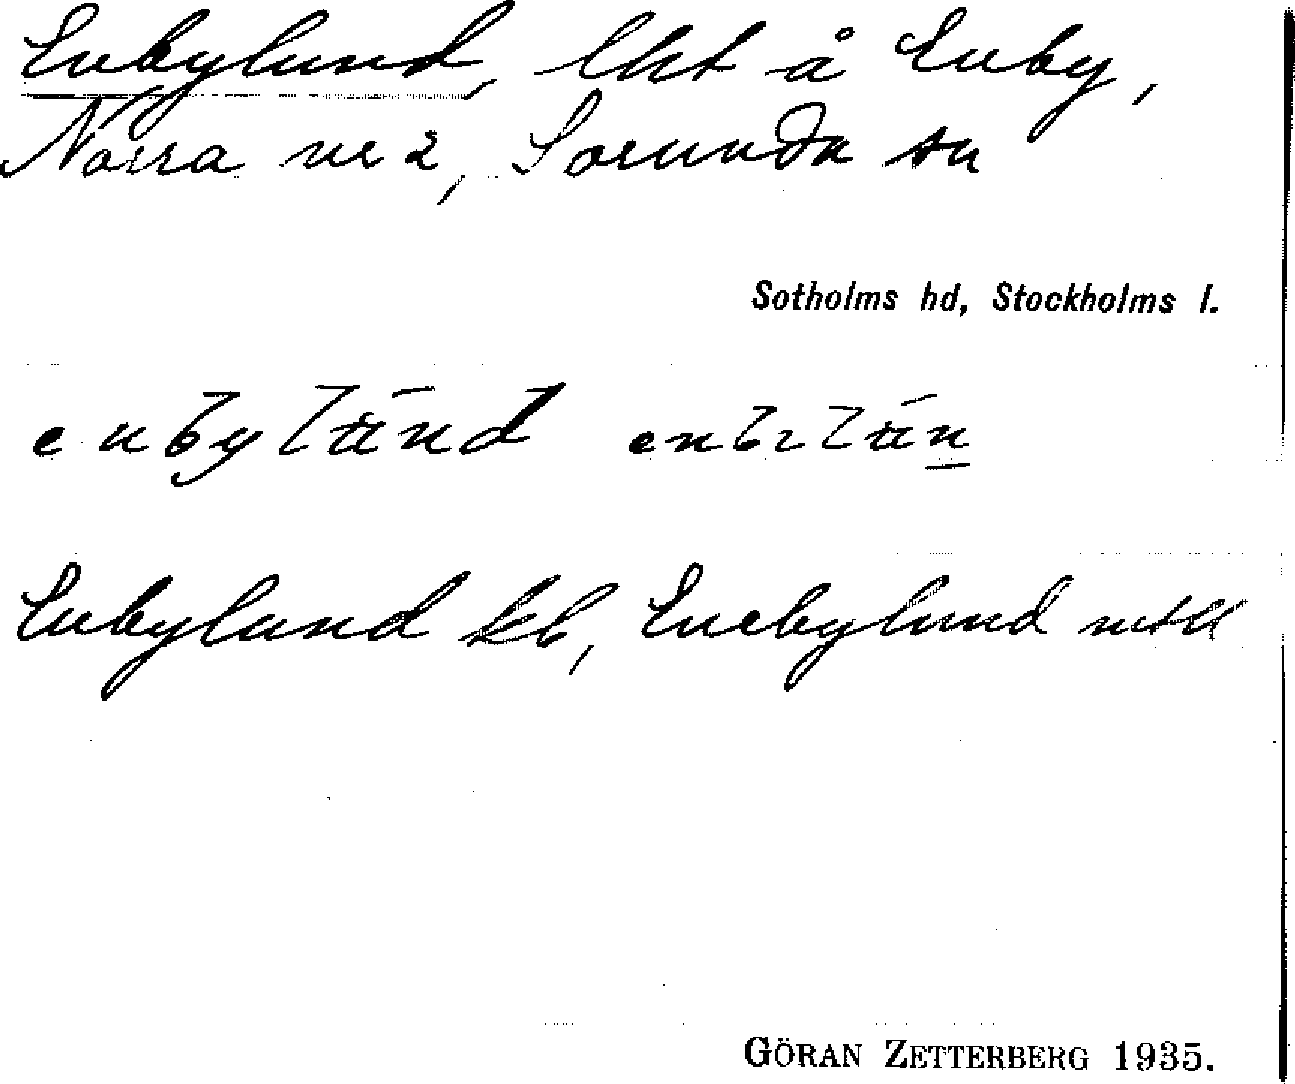 Enbylund, lht å Enby,
Norra nr 2, Sorunda sn
Sotholms hd, Stockholms l.
Enbylund kb, Enebylund mtll
GÖRAN ZETTERBERG 1935.